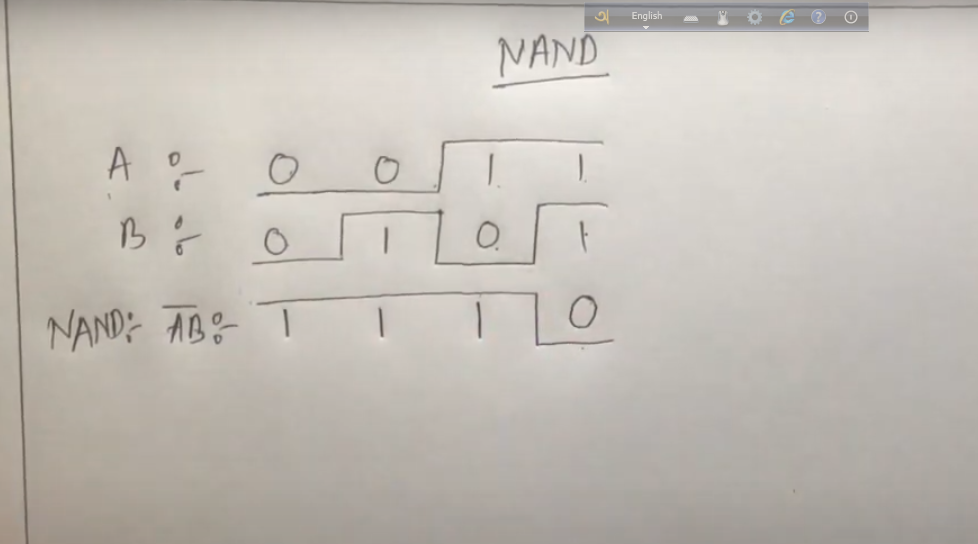 অ English
NAND
A :- 0 0 1 1
B :- 0 1 0 1
NAND:- A̅B̅:- 1 1 1 0